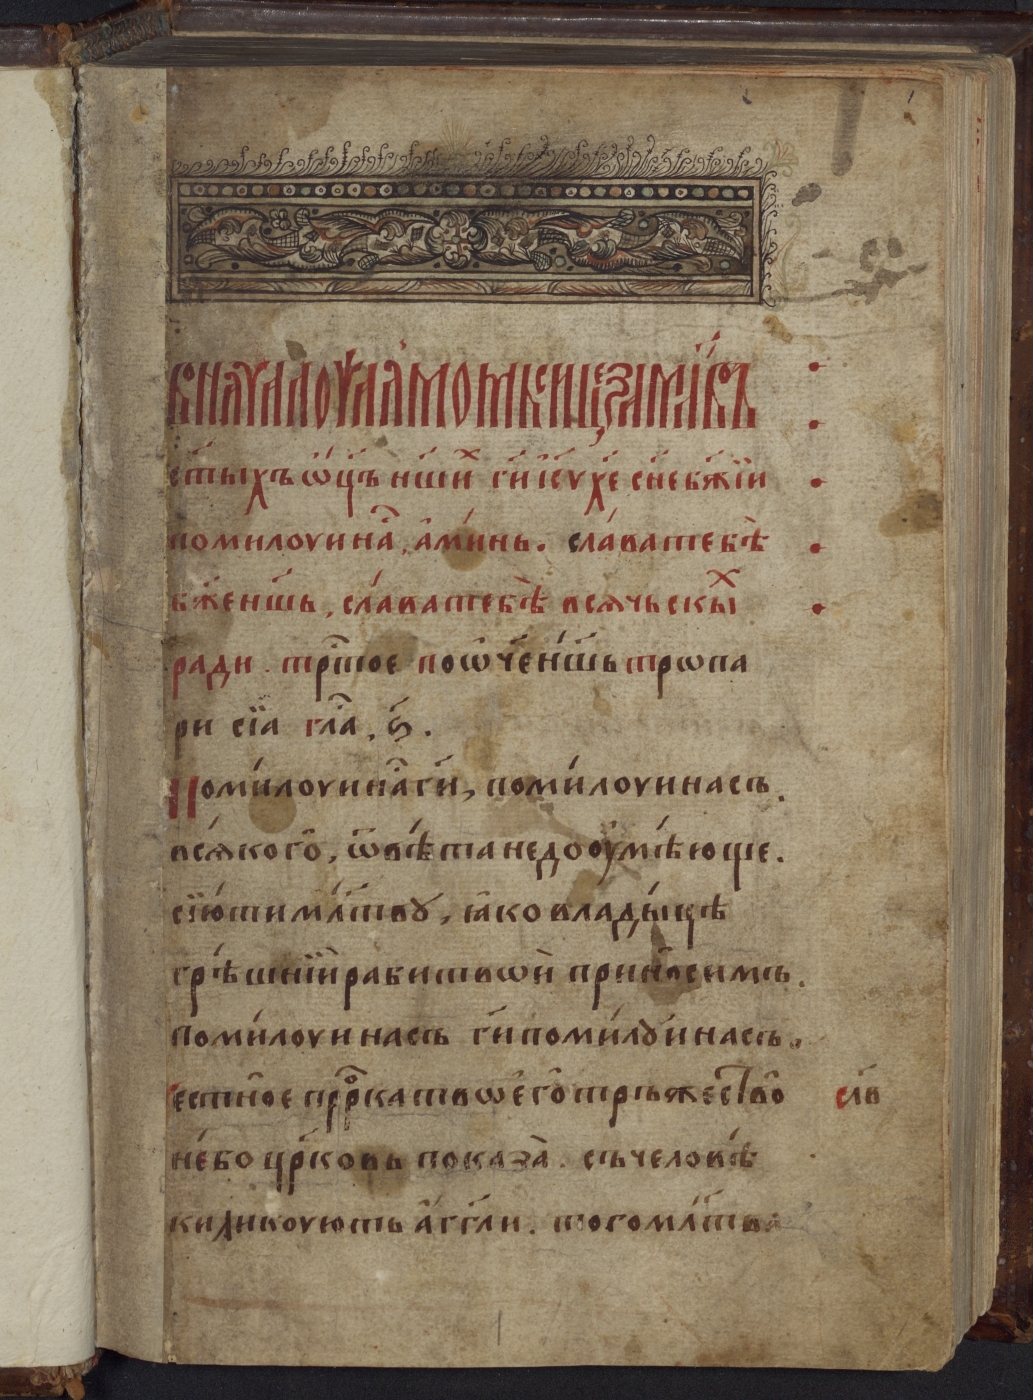 внача́лоу́ли́ мо́литвами за мл҃твъ
ст҃ы́хъ ѡ҃ц҃ъ на́ши́х гⷭ҇и і҃су хе҃ сн҃е бж҃їи
помилоуи на́с, а҆ми́нь. сла́ва тебѣ̀
бж҃е на́шь, сла́ва тебѣ̀ всячьскы́х
ради. трⷭ҇тое по ѡ҆́ч҃е на́шь тропа
ри сїѧ̑ гла́, ѕ҃.
Поми́лоуи на́с гⷭ҇и, поми́лоуи насъ.
вся́кого̑, ѿвѣ́та недооумѣ́юще.
сїю́ ти мл҃твꙋ, ꙗ҆ко влады́цѣ
грѣ́шнїи раби твои̑ прино́симъ.
поми́лоуи насъ гⷭ҇и поми́лꙋи насъ.
Честно́е прⷪ҇рка твоего̑ тръжество̑
сла́в
не́бо цр҃ковь показа̀. съ человѣ́
ки ликоуютъ а҆́гг҃ли. того мл҃тва